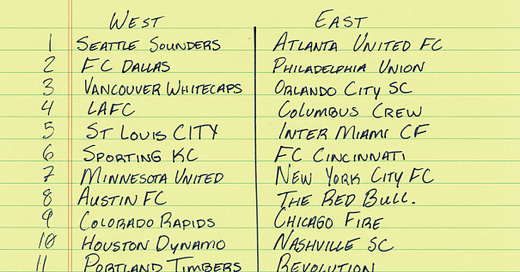 WEST EAST
1 SEATTLE SOUNDERS ATLANTA UNITED FC
2 FC DALLAS PHILADELPHIA UNION
3 VANCOUVER WHITECAPS ORLANDO CITY SC
4 LAFC COLUMBUS CREW
5 ST LOUIS CITY INTER MIAMI CF
6 SPORTING KC FC CINCINNATI
7 MINNESOTA UNITED NEW YORK CITY FC
8 AUSTIN FC THE RED BULL.
9 COLORADO RAPIDS CHICAGO FIRE
10 HOUSTON DYNAMO NASHVILLE SC
11 PORTLAND TIMBERS REVOLUTION